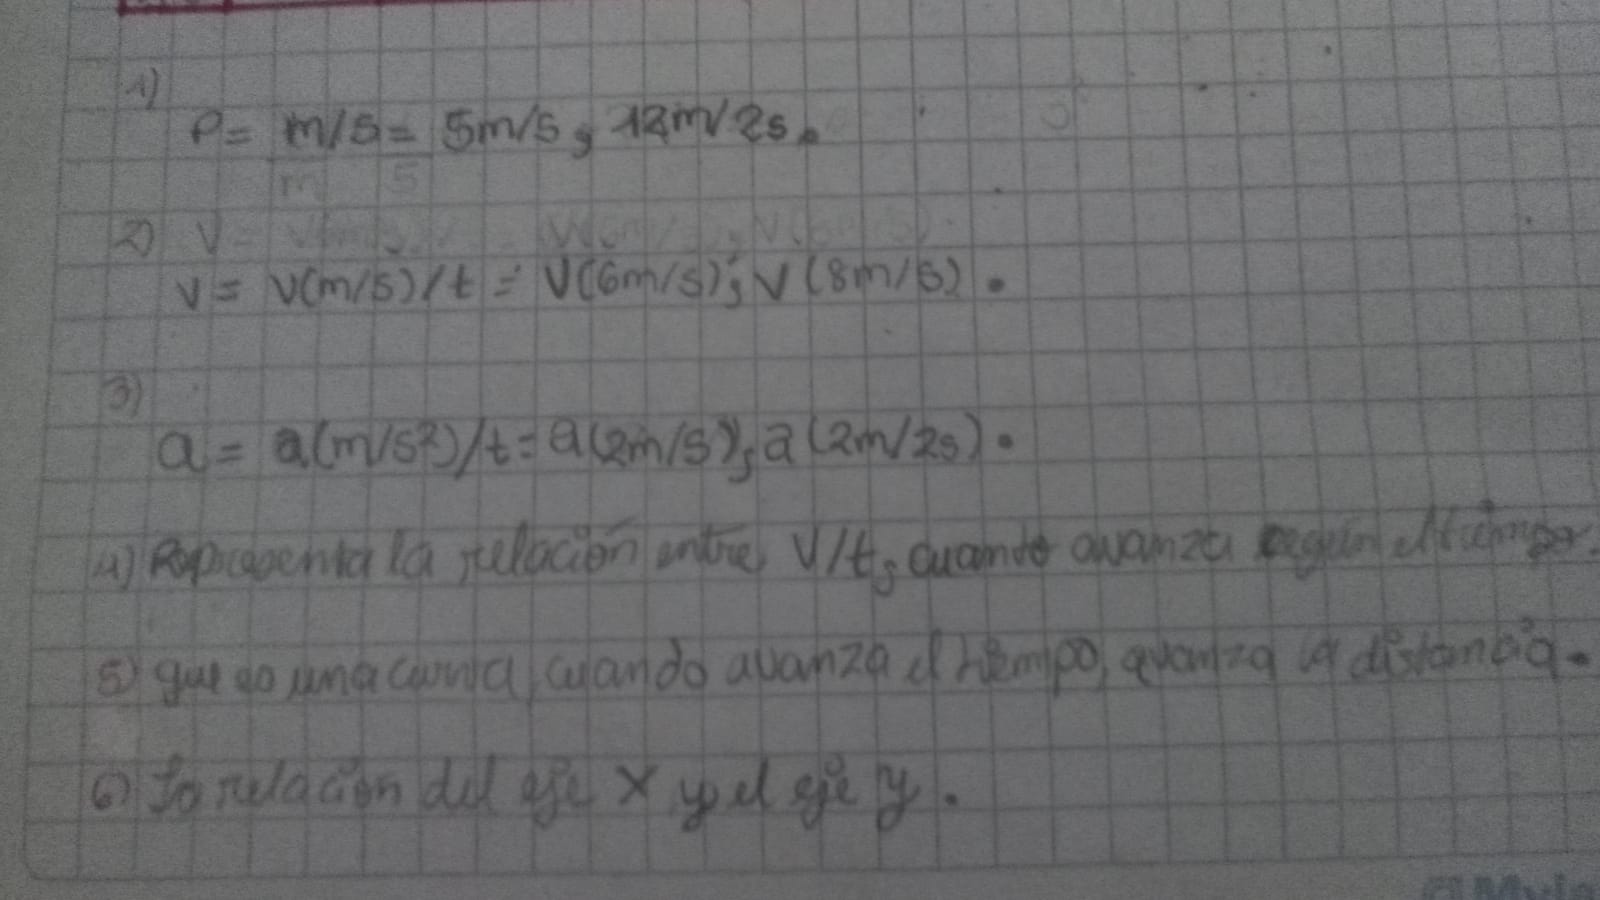 1)
P= m/s = 5m/s, 12m/2s.
m 5
2) V
V = V(m/s)/t = V(6m/s); V(8m/s).
3)
a = a(m/s²)/t = a(2m/s), a(2m/2s).
4) Representa la relación entre V/t, cuando avanza según el tiempo.
5) que es una curva, cuando avanza el tiempo, avanza la distancia.
6) La relación del eje x y el eje y.